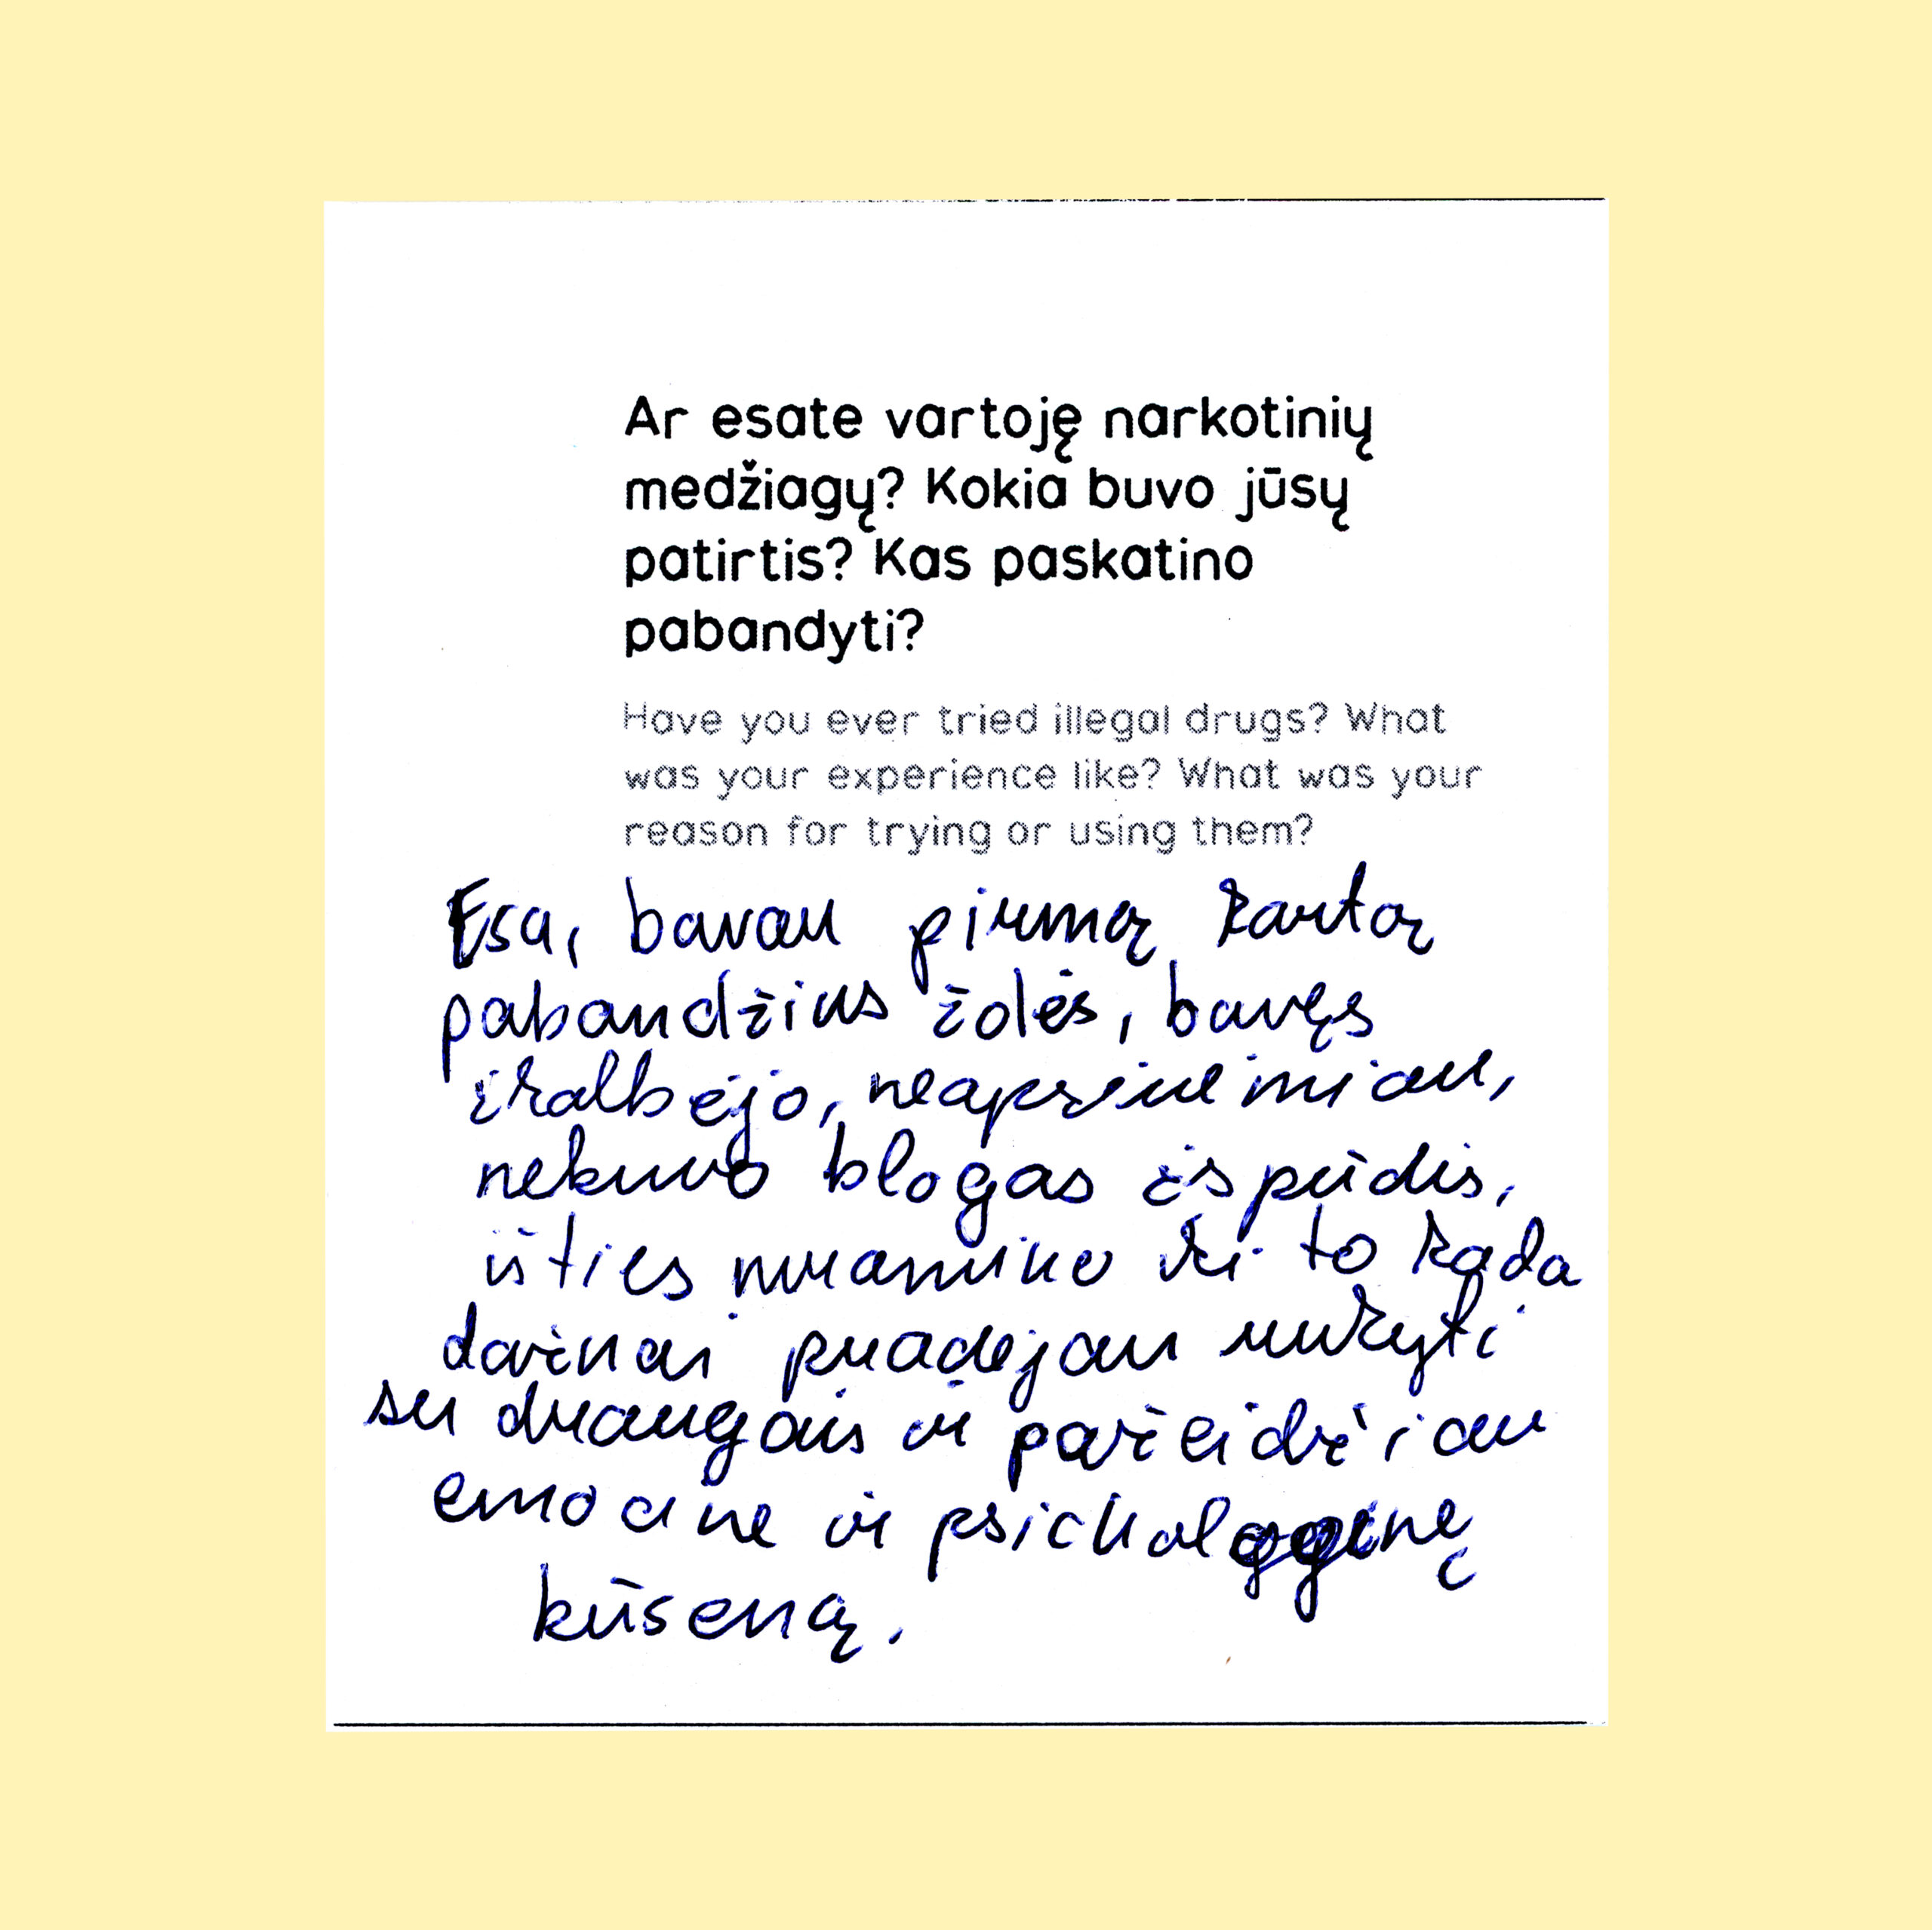 Ar esate vartoję narkotinių
medžiagų? Kokia buvo jūsų
patirtis? Kas paskatino
pabandyti?
Have you ever tried illegal drugs? What
was your experience like? What was your
reason for trying or using them?
Esu, buvau pirmą kartą
pabandžius žolės, buvęs
įkalbėjo, neapsiėmiau,
nebuvo blogas įspūdis,
išties nuramino iki to kada
dažnai pradėjau rūkyti
su draugais ir pažeidžiau
emocine ir psichologinę
būseną.